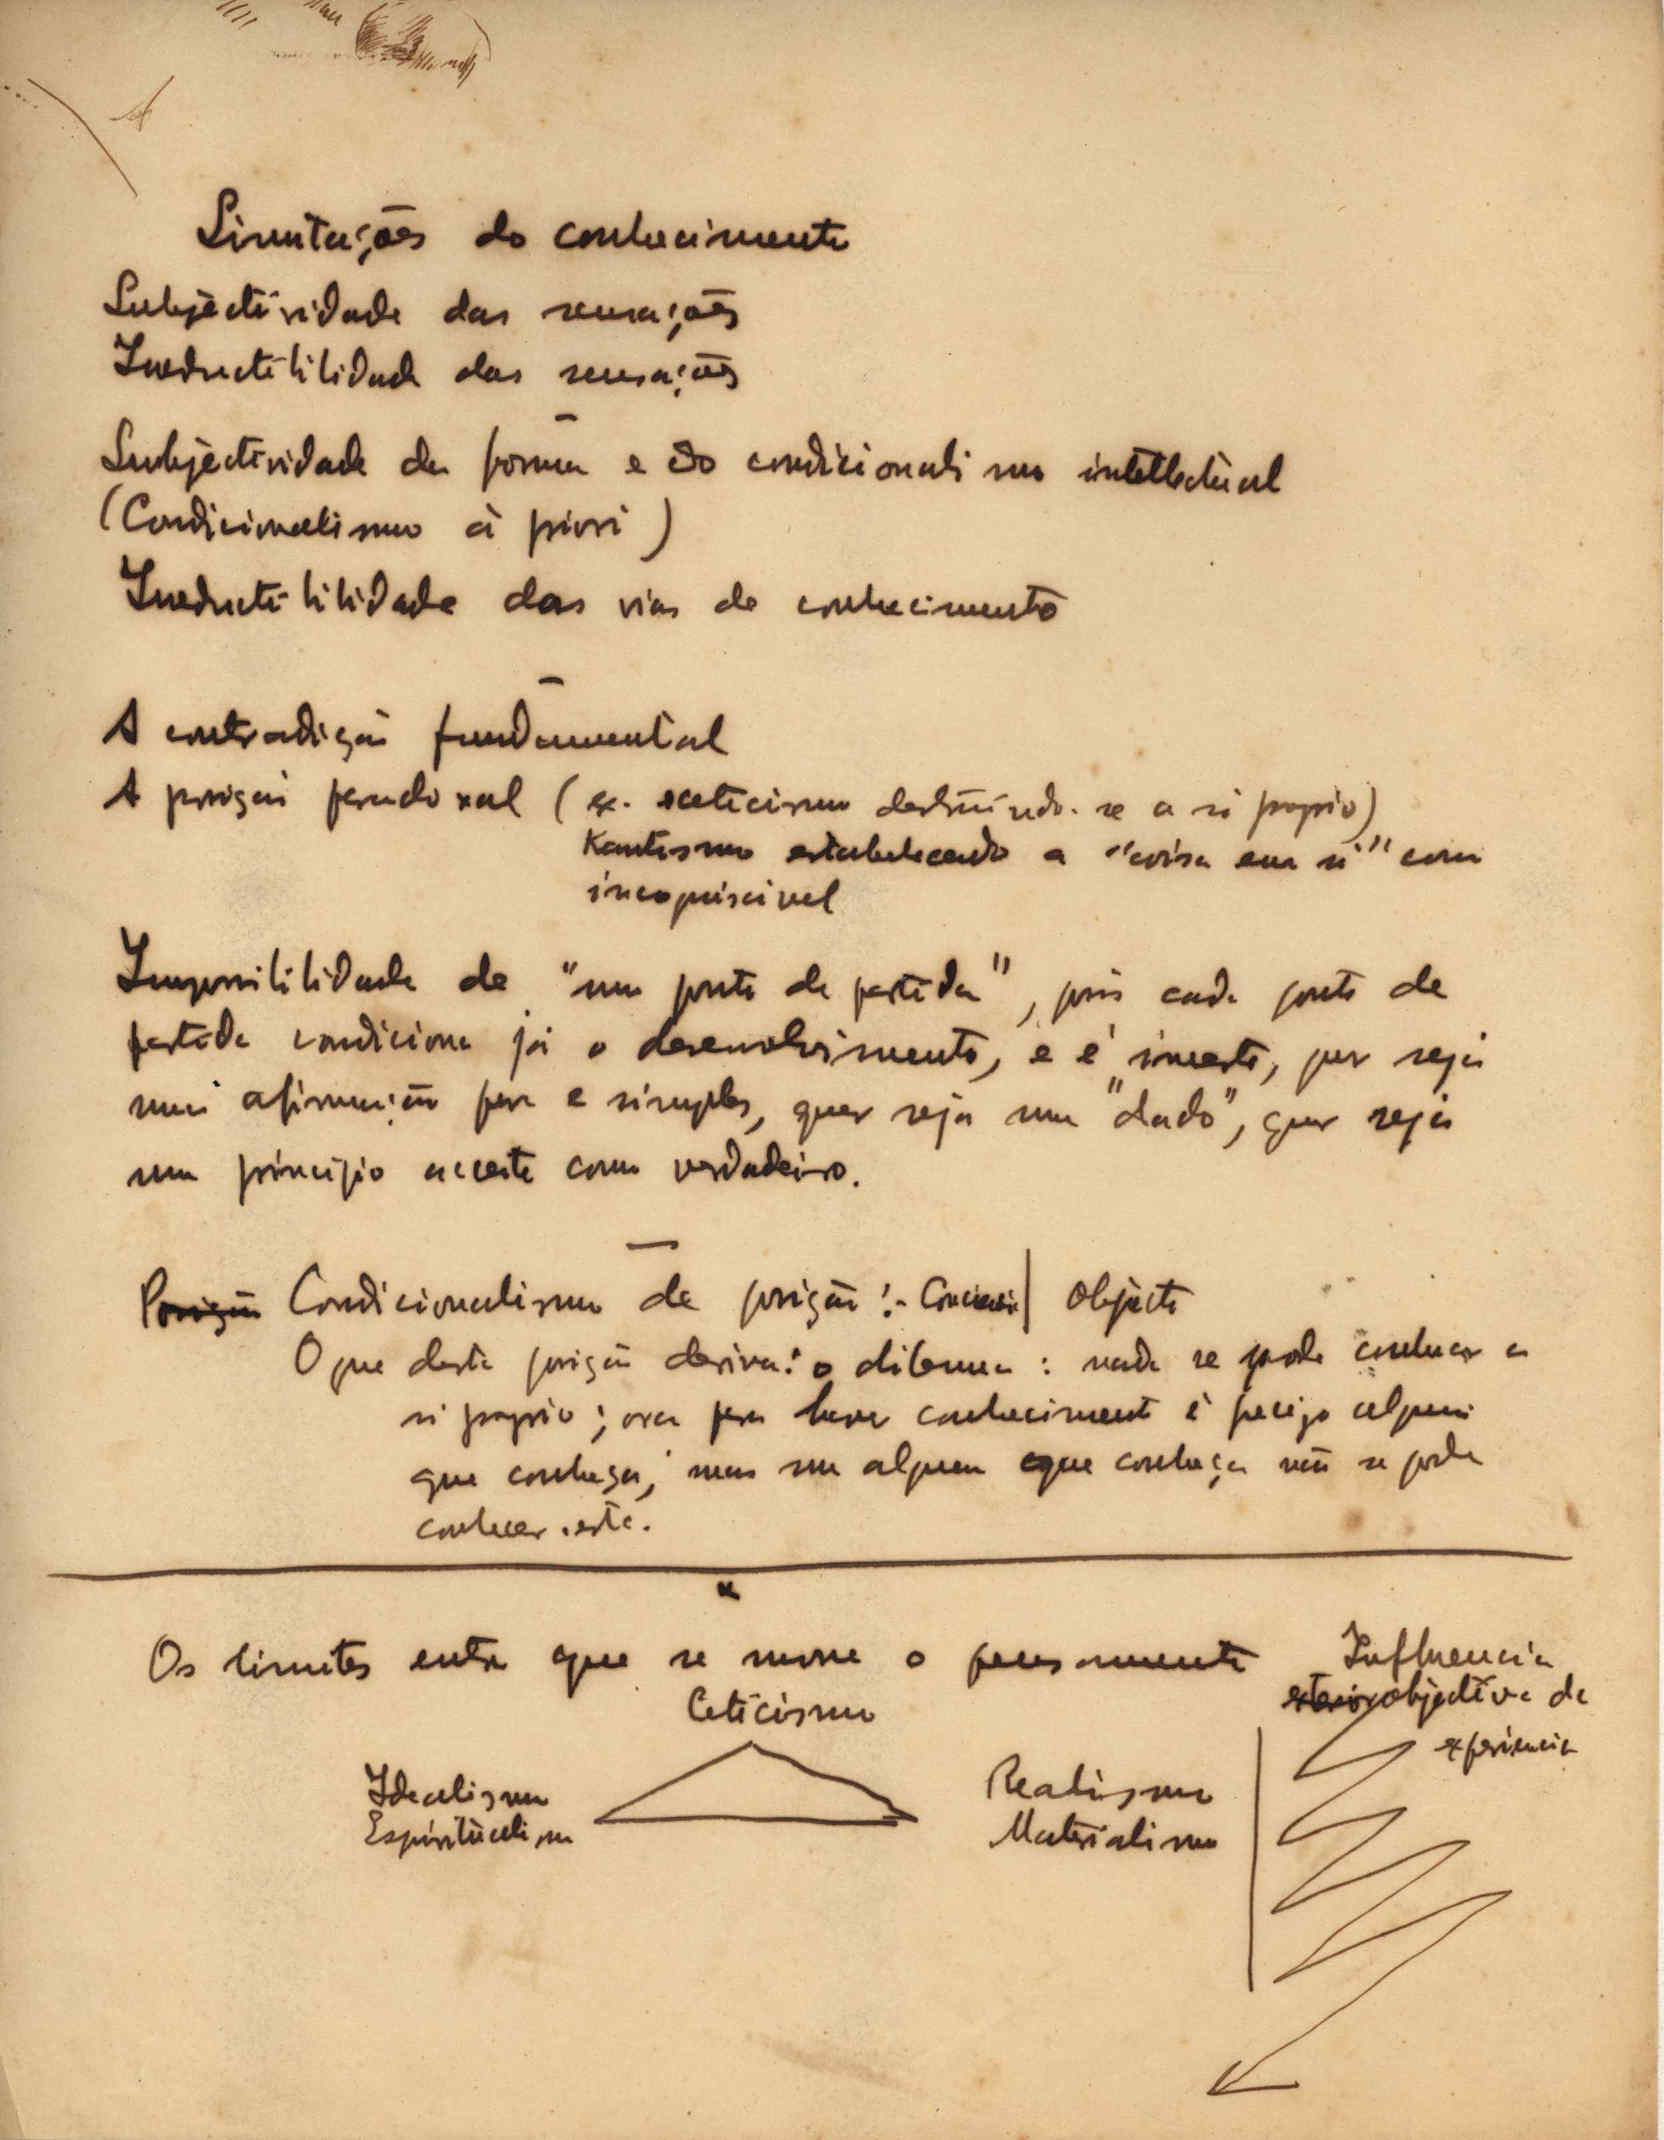 Limitações do conhecimento
Subjectividade das sensações
Irreductibilidade das sensações
Subjectividade da forma e do condicionalismo intellectual
(Condicionalismo à priori)
Irreductibilidade das vias do conhecimento
A contradição fundamental
A posição paradoxal (ex. scetecismo destruindo-se a si proprio)
Kantismo estabelecendo a "coisa em si" como
incognoscivel
Impossibilidade de "um ponto de partida", pois cada ponto de
partida condiciona já o desenvolvimento, e é incerto, quer seja
uma afirmação pura e simples, quer seja um "dado", quer seja
um principio acceite como verdadeiro.
Posição Condicionalismo de posição:- Conciencia | Objecto
O que desta posição deriva: o dilema: nada se pode conhecer a
si proprio; ora para haver conhecimento é preciso alguem
que conheça; mas sem alguem que conheça não se pode
conhecer este.
Os limites entre que se move o pensamento
Influencia
exterior objectiva da
experiencia
Ceticismo
Idealismo
Espiritualismo
Realismo
Materialismo